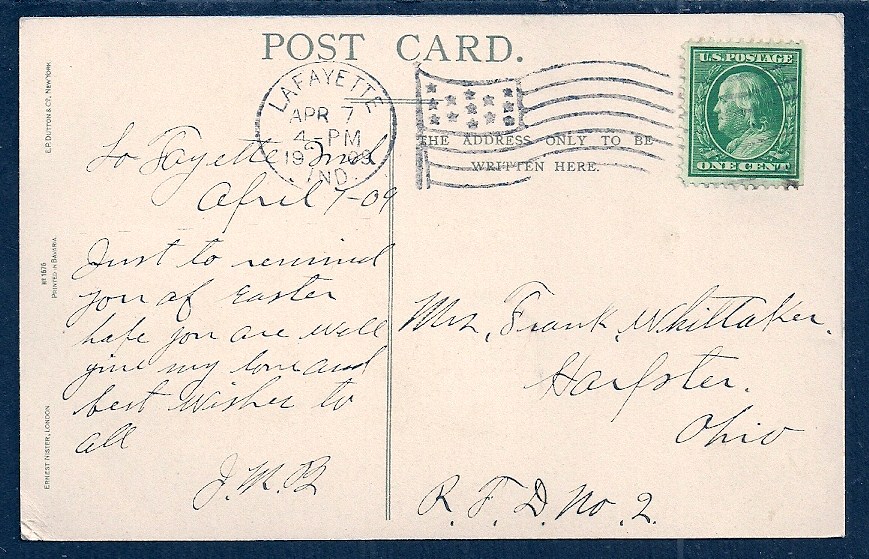 POST CARD.
LAFAYETTE
APR 7
4-PM
1909
IND.
U.S. POSTAGE
ONE CENT
THE ADDRESS ONLY TO BE
WRITTEN HERE.
E.P. DUTTON & CO., NEW YORK
PRINTED IN BAVARIA
ERNEST NISTER, LONDON
La Fayette Ind
April 7-09
Just to remind
you of Easter
hope you are well
give my love and
best wishes to
all
J.M.B
Mrs. Frank Whittaker.
Harpster.
Ohio
R. F. D. No. 2.